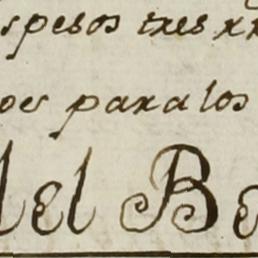 spesos tres rr
oes para los
del Be